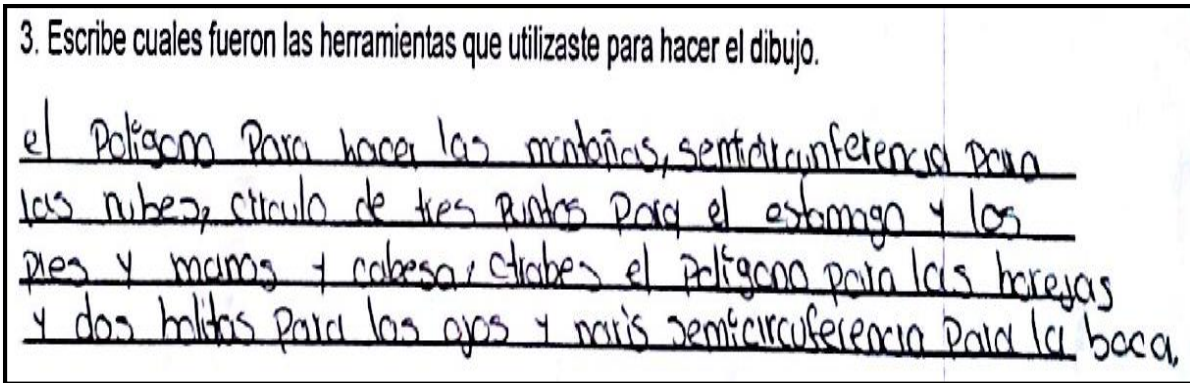 3. Escribe cuales fueron las herramientas que utilizaste para hacer el dibujo.
el Polígono Para hacer las montañas, semicircunferencia para
las nubes, circulo de tres Puntos Para el estomago y los
pies y manos y cabesa, el Polígono para las horejas
y dos bolitas Para los ojos y naris semicircuferencia Para la boca.